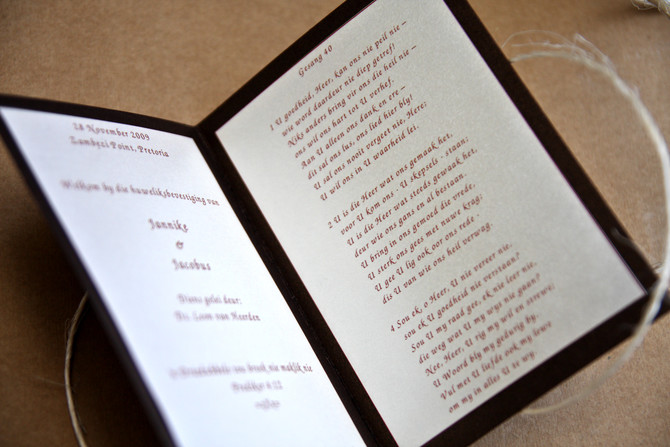 28 November 2009
Zambezi Point, Pretoria
Welkom by die huweliksbevestiging van
Jannike
&
Jacobus
Diens gelei deur:
Ds. Leon van Heerden
maklik nie
Prediker 4:12
Gesang 40
1 U goedheid, Heer, kan ons nie peil nie –
wie word daardeur nie diep getref!
Niks anders bring vir ons die heil nie –
ons wil ons hart tot U verhef.
Aan U alleen ons dank en ere –
dit sal ons lus, ons lied hier bly!
U sal ons nooit vergeet nie, Here:
U wil ons in U waarheid lei.
2 U is die Heer wat ons gemaak het,
voor U kom ons - U skepsels - staan;
U is die Heer wat steeds gewaak het,
deur wie ons gans en al bestaan.
U bring in ons gemoed die vrede,
U sterk ons gees met nuwe krag;
U gee U lig ook oor ons rede -
dis U van wie ons heil verwag.
4 Sou ek, o Heer, U nie vereer nie,
sou ek U goedheid nie verstaan?
Sou U my raad gee, ek nie leer nie,
die weg wat U my wys nie gaan?
Nee, Heer, U rig my wil en strewe;
U Woord bly my gedurig by-
Vul met U liefde ook my lewe
om my in alles U te wy.